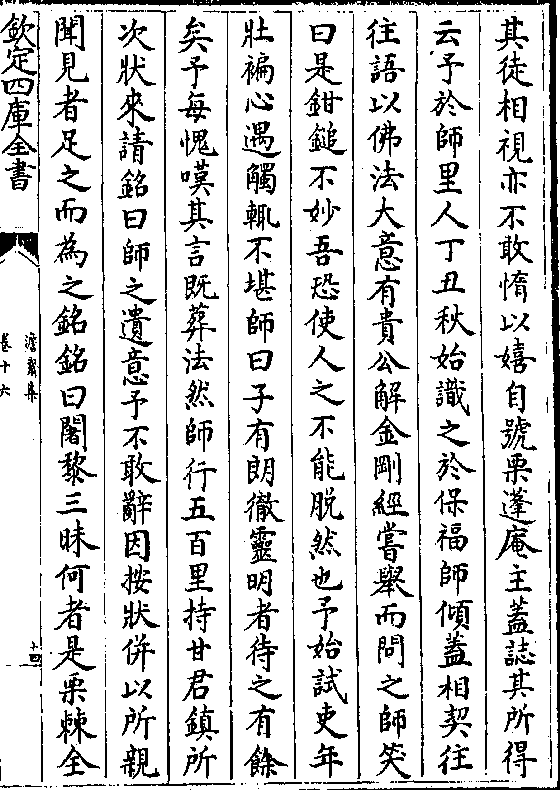 其徒相視亦不敢惰以嬉自號栗蓬庵主蓋誌其所得
云予於師里人丁丑秋始識之於保福師傾蓋相契往
往語以佛法大意有貴公解金剛經嘗舉而問之師笑
曰是鉗鎚不妙吾恐使人之不能脱然也予始試吏年
壯褊心遇觸輒不堪師曰子有朗徹靈明者待之有餘
矣予每愧嘆其言既葬法然師行五百里持甘君鎮所
次狀來請銘曰師之遺意予不敢辭因按狀併以所親
聞見者足之而為之銘銘曰闍黎三昧何者是栗棘全
欽定四庫全書
澹齋集
卷十六
十四